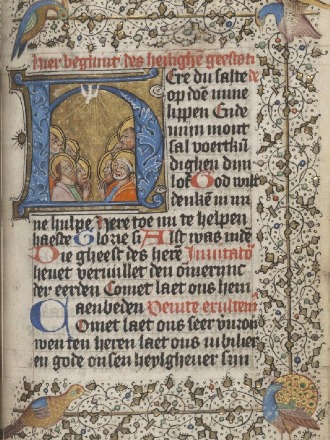 Hier beghint des heilighē gheestē
Ere du salte
op doē mine
lippen Ende
mijn mont
sal voertkū
dighen dijn
lof God wilt
denkē in mi
ne hulpe Here toe mi te helpen
haeste Glorie si Alst was inde
Die gheest des herē Inuitatō
heuet veruullet den omerinc
der eerden Comet laet ons hem
aenbeden Venite exultem
Comet laet ons seer
wen ten heren laet ons iubiliere
en gode onsen heylgheuer